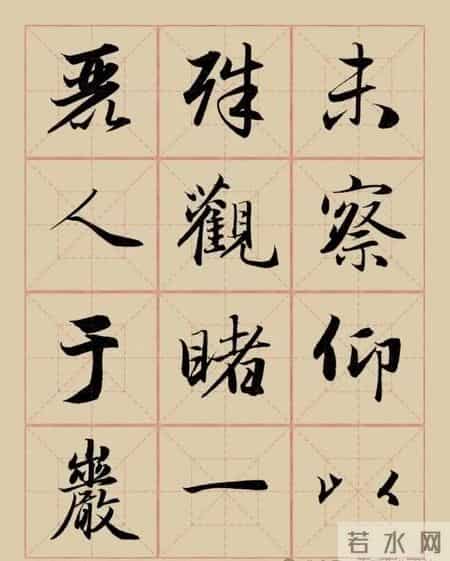 未察仰以
殊觀睹一
麗人于巖
若水网